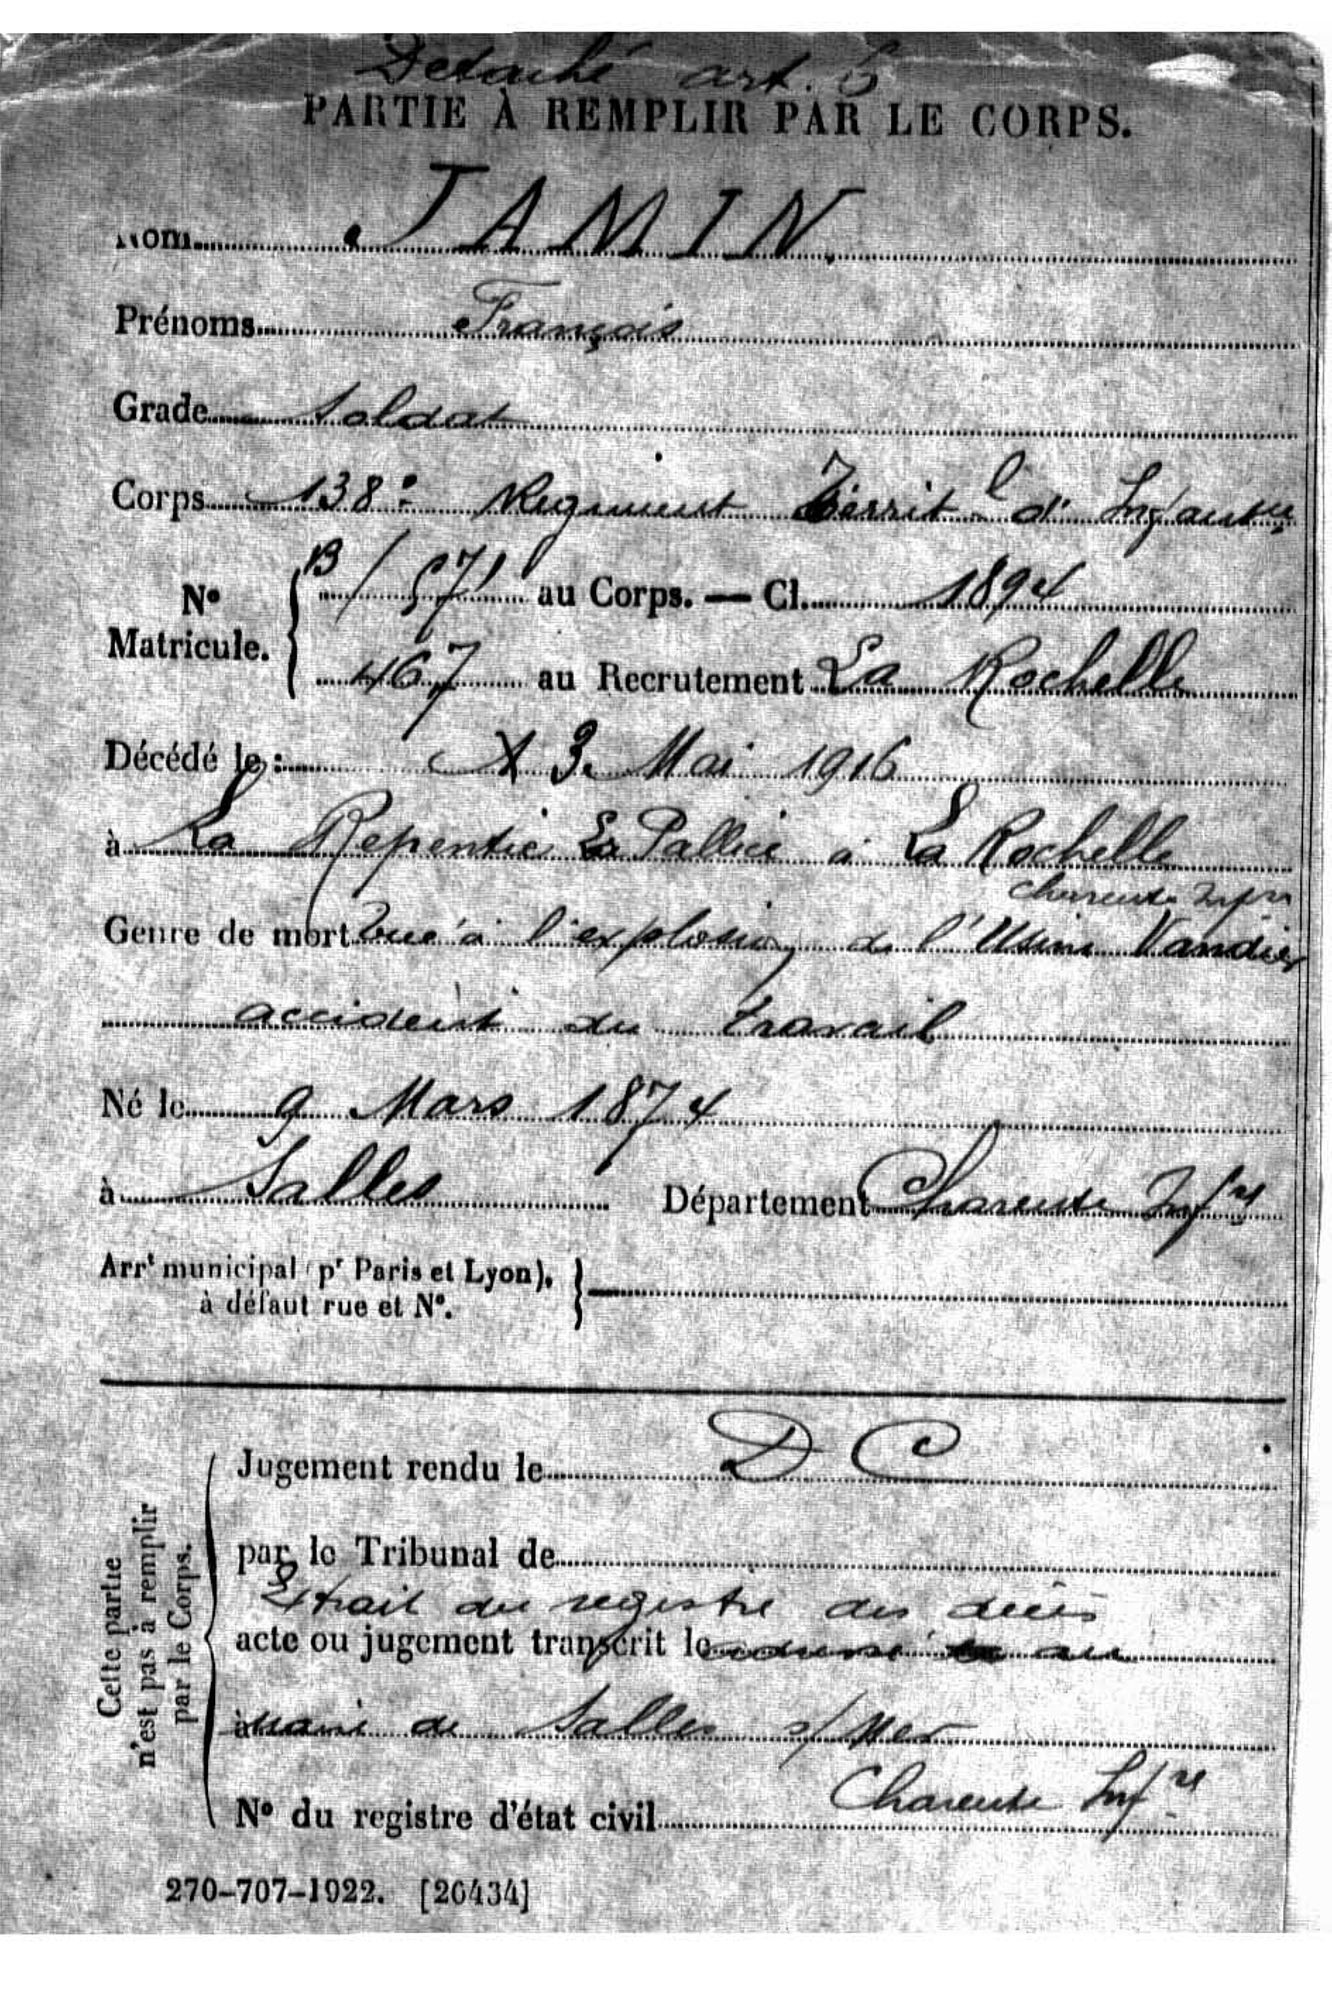 Détaché art. 6
PARTIE À REMPLIR PAR LE CORPS.
Nom JAMIN
Prénoms François
Grade Soldat
Corps 138e Régiment Territl d'Infantie
No Matricule. B/571 au Corps. — Cl. 1894
467 au Recrutement La Rochelle
Décédé le : 3 Mai 1916
à La Repentie La Pallice à La Rochelle
Charente Infre
Genre de mort Tué à l'explosion de l'Usine Vandier
accident du travail
Né le 9 Mars 1874
à Salles Département Charente Infre
Arrt municipal (pr Paris et Lyon),
à défaut rue et No.
Cette partie
n'est pas à remplir
par le Corps.
Jugement rendu le D C
par le Tribunal de
Extrait du registre des décès
acte ou jugement transcrit le adressé au
à maire de Salles s/Mer
Charente Infre
No du registre d'état civil
270-707-1922. [26434]